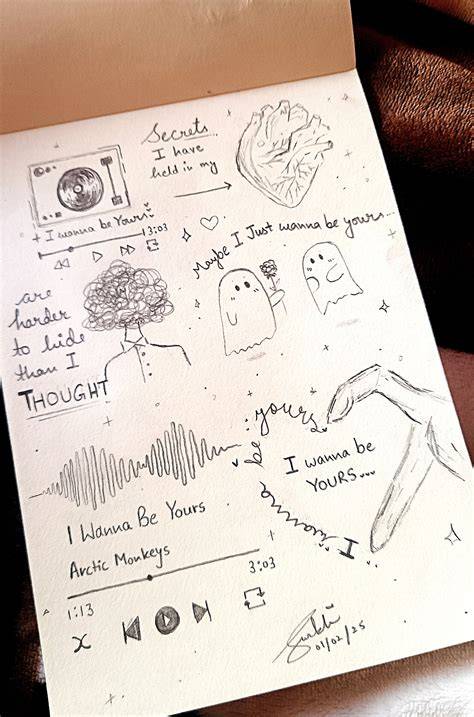 Secrets
I have
held in my
+ I wanna be Yours
3:03
Maybe I Just wanna be yours...
are
harder
to hide
than I
THOUGHT
I wanna be yours
I wanna be
YOURS...
I Wanna Be Yours
Arctic Monkeys
1:13
3:03
x
01/02/25